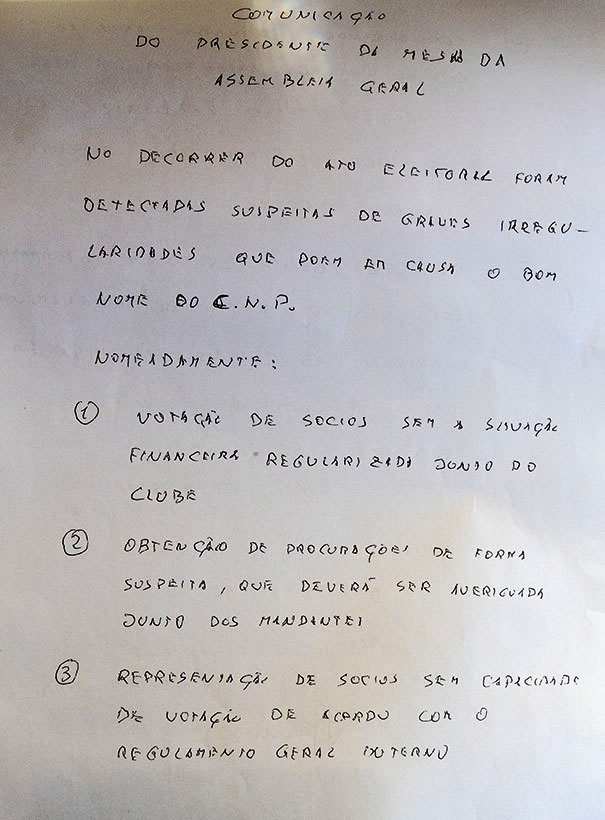 COMUNICAÇÃO
DO PRESIDENTE DA MESA DA
ASSEMBLEIA GERAL
NO DECORRER DO ATO ELEITORAL FORAM
DETECTADAS SUSPEITAS DE GRAVES IRREGU-
LARIDADES QUE POEM EM CAUSA O BOM
NOME DO C.N.P.
NOMEADAMENTE:
① VOTAÇÃO DE SOCIOS SEM A SITUAÇÃO
FINANCEIRA REGULARIZADA JUNTO DO
CLUBE
② OBTENÇÃO DE PROCURAÇÕES DE FORMA
SUSPEITA, QUE DEVERÁ SER AVERIGUADA
JUNTO DOS MANDANTES
③ REPRESENTAÇÃO DE SOCIOS SEM CAPACIDADE
DE VOTAÇÃO DE ACORDO COM O
REGULAMENTO GERAL INTERNO